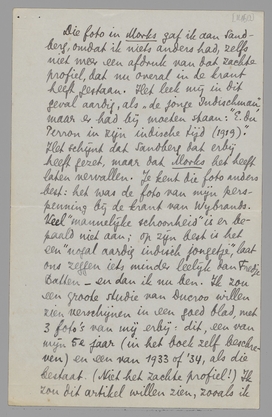 Die foto in Morks gaf ik aan Sand-
berg, omdat ik niets anders had, zelfs
niet meer een afdruk van dat zachte
profiel, dat nu overal in de krant
heeft gestaan. Het leek mij in dit
geval aardig, als "de jonge Indischman",
maar er had bij moeten staan: "E. du
Perron in zijn indische tijd (1919)."
Het schijnt dat Sandberg dat erbij
heeft gezet, maar dat Morks het heeft
laten vervallen. Je kent die foto anders
best: het was de foto van mijn pers-
penning bij de krant van Wybrands.
Veel "mannelijke schoonheid" is er be-
paald niet aan; op zijn best is het
een "nogal aardig indisch jongetje", laat
ons zeggen iets minder leelijk dan Fredje
Batten – en dan ik nu ben. Ik zou
een groote studie van Ducroo willen
zien verschijnen in een goed blad, met
3 foto's van mij erbij: dit, een van
mijn 5e jaar (in het boek zelf beschre-
ven) en een van 1933 of '34, als die
bestaat. (Niet het zachte profiel!) Ik
zou dit artikel willen zien, zooals ik